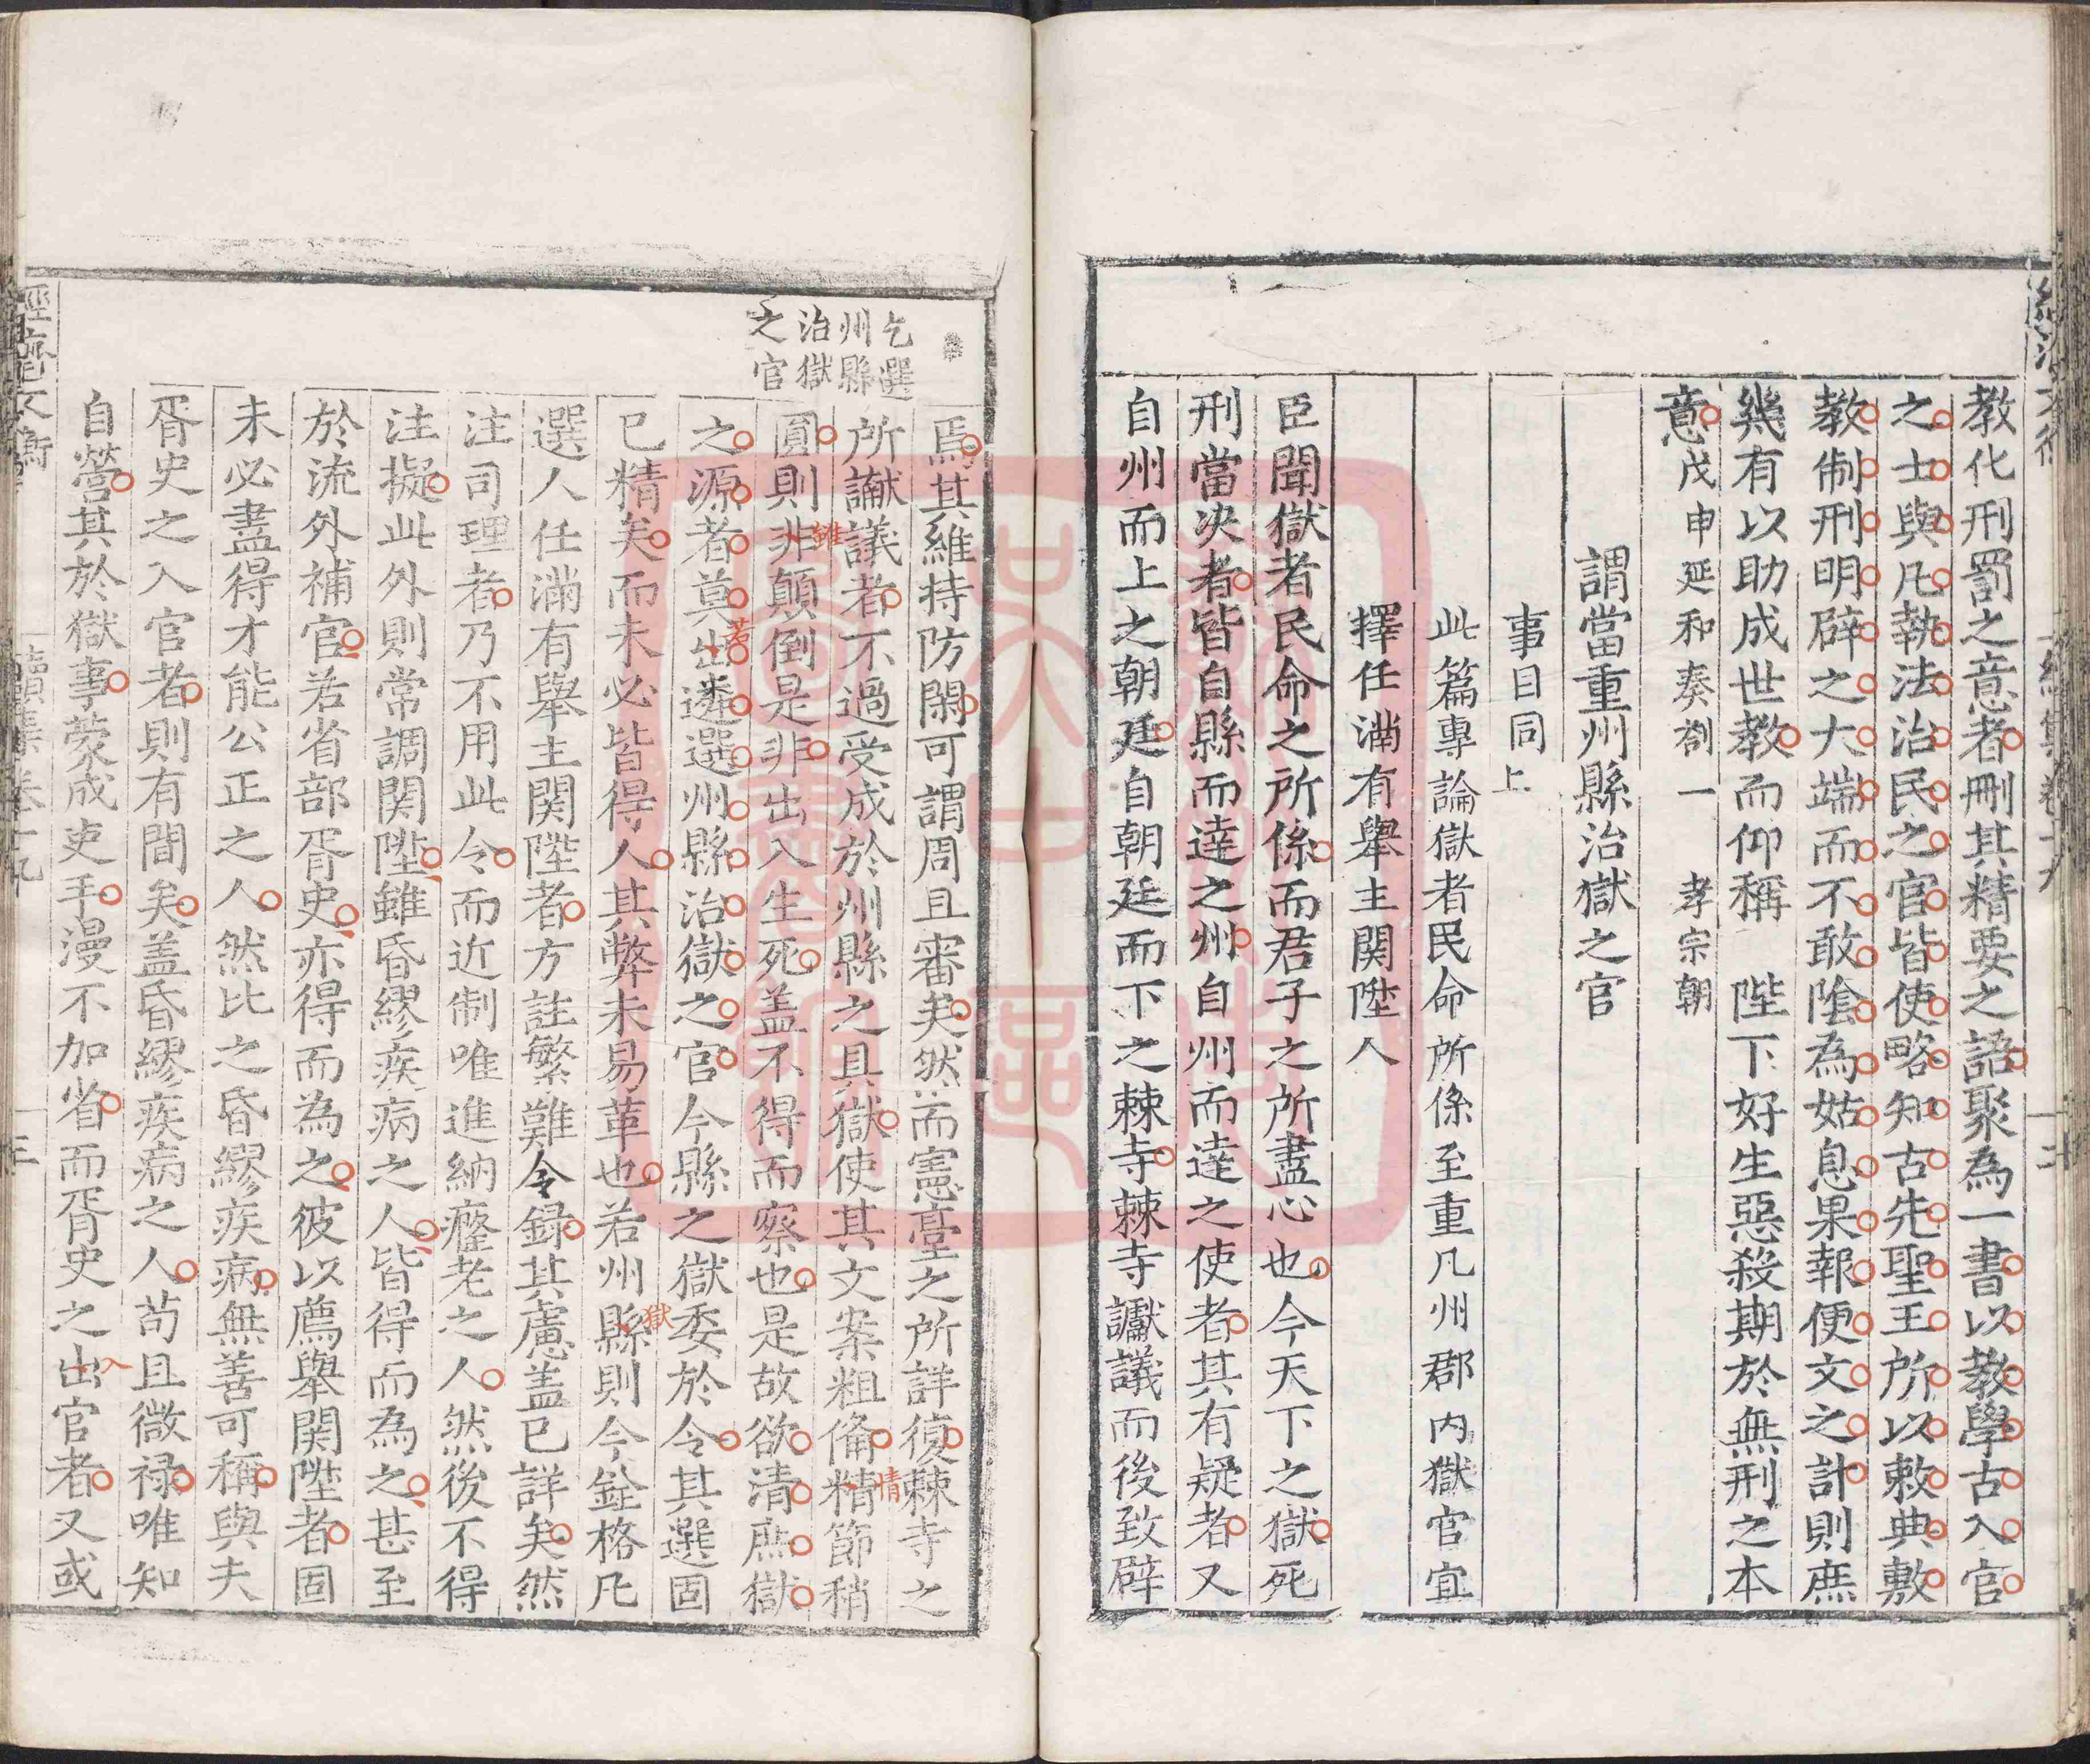 教化刑罰之意者刪其精要之語聚為一書以教學古入官
之士與凡執法治民之官皆使略知古先聖王所以敕典敷
教制刑明辟之大端而不敢陰為姑息果報便文之計則庶
幾有以助成世教而仰稱 陛下好生惡殺期於無刑之本
意戊申延和奏劄一 孝宗朝
謂當重州縣治獄之官
事目同上
此篇專論獄者民命所係至重凡州郡內獄官宜
擇任滿有舉主関陞人
臣聞獄者民命之所係而君子之所盡心也今天下之獄死
刑當决者皆自縣而達之州自州而達之使者其有疑者又
自州而上之朝廷自朝廷而下之棘寺棘寺讞議而後致辟
乞選
州縣
治獄
之官
焉其維持防閑可謂周且審矣然而憲臺之所詳復棘寺之
所讞議者不過受成於州縣之具獄使其文案粗備精節稍
情
圓則非顛倒是非出入生死盖不得而察也是故欲清庶獄
雖
之源者莫出遴選州縣治獄之官今縣之獄委於令其選固
若
已精矣而未必皆得人其弊未易革也若州縣則今銓格凡
獄
選人任滿有舉主関陞者方註繁難令録其慮盖已詳矣然
注司理者乃不用此令而近制唯進納癃老之人然後不得
注擬此外則常調関陞雖昏繆疾病之人皆得而為之甚至
於流外補官若省部胥史亦得而為之彼以薦舉関陞者固
未必盡得才能公正之人然比之昏繆疾病無善可稱與夫
胥史之入官者則有間矣盖昏繆疾病之人苟且微祿唯知
自營其於獄事蒙成吏手漫不加省而胥史之出官者又或
入
經濟文衡
續集卷十九